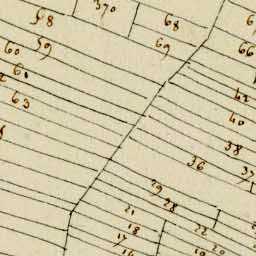 58
370
68
69
66
60
59
61
63
42
40
38
36
37
29
28
21
18
17
16
22
20
19